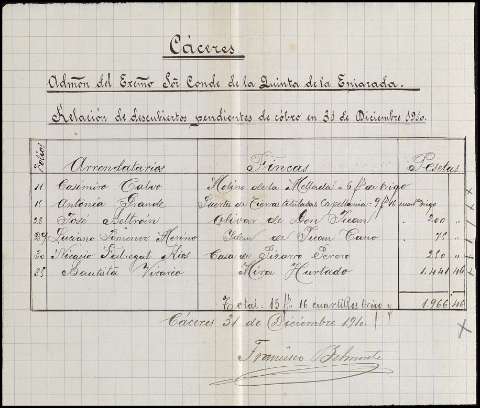 Cáceres
Admón del Excmo Sör Conde de la Quinta de la Enjarada.
Relación de descubiertos pendientes de cobro en 31 de Diciembre 1910.
Folios Arrendatarios Fincas Pesetas
11 Casimiro Calvo Molino de la Mellada - 6 fs de trigo
19 Antonia Grande Suerte de tierra tituladas Capellania -
28 José Beltrán Olivar de Don Juan 200 "
29 Jimenez Merino Idem de Juan Cano 75 "
30 Nicasio Pedregal Rios Casa de Pizarro 250 "
35 Bautista Vivario Mira Hurtado 1.441 46
Total - 15 fs 16 cuartillos trigo y 1966 46
Cáceres 31 de Diciembre 1910.
Francisco Belmonte